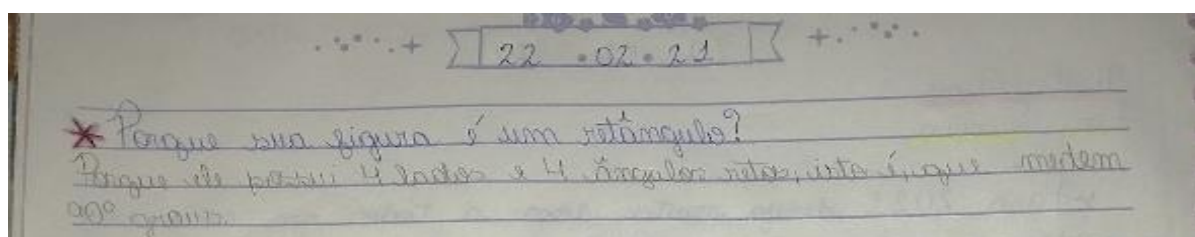 22 . 02 . 21
* Porque sua figura é um retângulo?
Porque ele possui 4 lados e 4 ângulos retos, isto é, que medem
90º graus.